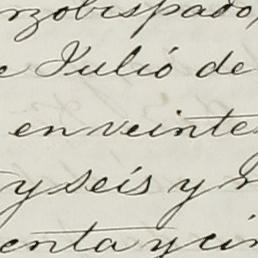 nzobispado,
e Julió de
en veinte
y seis y n
enta y cin